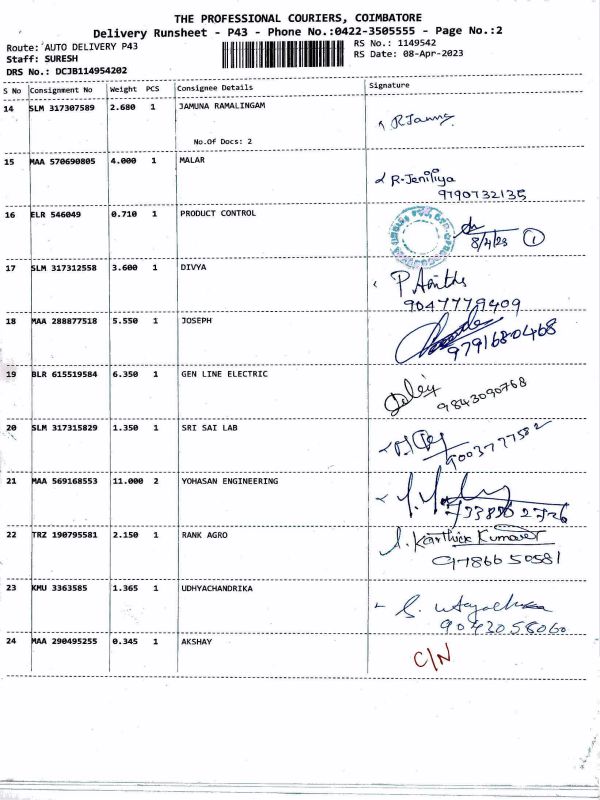 THE PROFESSIONAL COURIERS, COIMBATORE
Delivery Runsheet - P43 - Phone No.:0422-3505555 - Page No.:2
Route: AUTO DELIVERY P43 RS No.: 1149542
Staff: SURESH RS Date: 08-Apr-2023
DRS No.: DCJB114954202
S No Consignment No Weight PCS Consignee Details Signature
14 SLM 317307589 2.680 1 JAMUNA RAMALINGAM
No.Of Docs: 2
15 MAA 570690805 4.000 1 MALAR
R. Jeniliya
9790732135
16 ELR 546049 0.710 1 PRODUCT CONTROL
8/4/23 1
17 SLM 317312558 3.600 1 DIVYA
P
9047779409
18 MAA 288877518 5.550 1 JOSEPH
9791680468
19 BLR 615519584 6.350 1 GEN LINE ELECTRIC
9843090768
20 SLM 317315829 1.350 1 SRI SAI LAB
9003777582
21 MAA 569168553 11.000 2 YOHASAN ENGINEERING
22 TRZ 190795581 2.150 1 RANK AGRO
Karthick
9786650581
23 KMU 3363585 1.365 1 UDHYACHANDRIKA
9043058060
24 MAA 290495255 0.345 1 AKSHAY
C/N